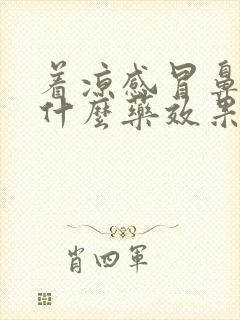 着凉感冒鼻
什麼藥效果
肖四军